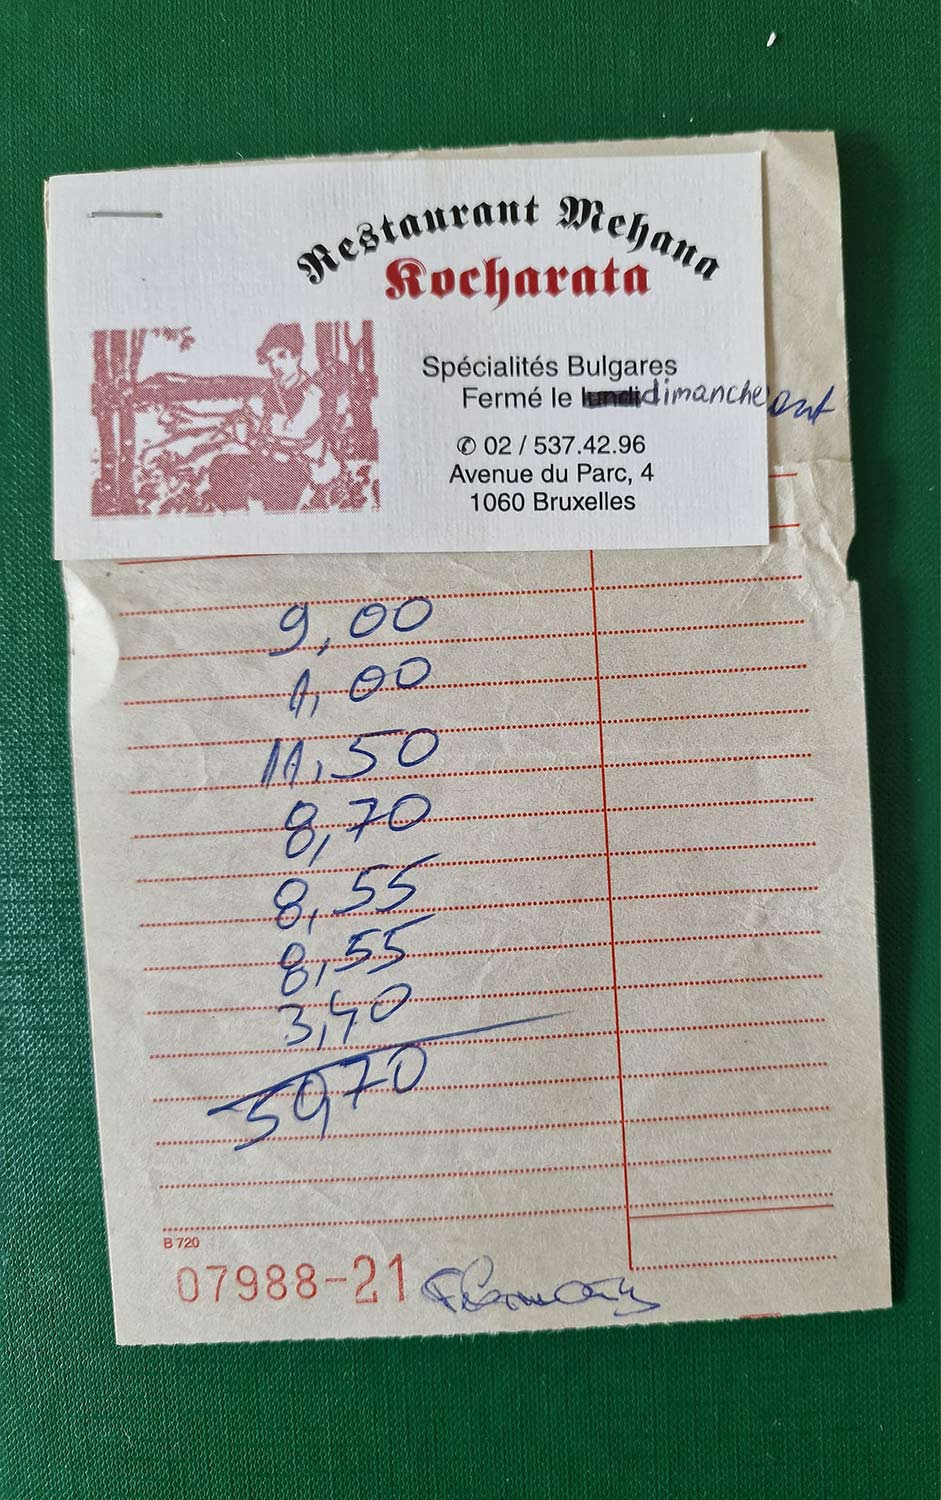 Restaurant Mehana
Kocharata
Spécialités Bulgares
Fermé le lundi dimanche
✆ 02 / 537.42.96
Avenue du Parc, 4
1060 Bruxelles
9,00
1,00
11,50
8,70
8,55
8,55
3,40
5970
B 720
07988-21